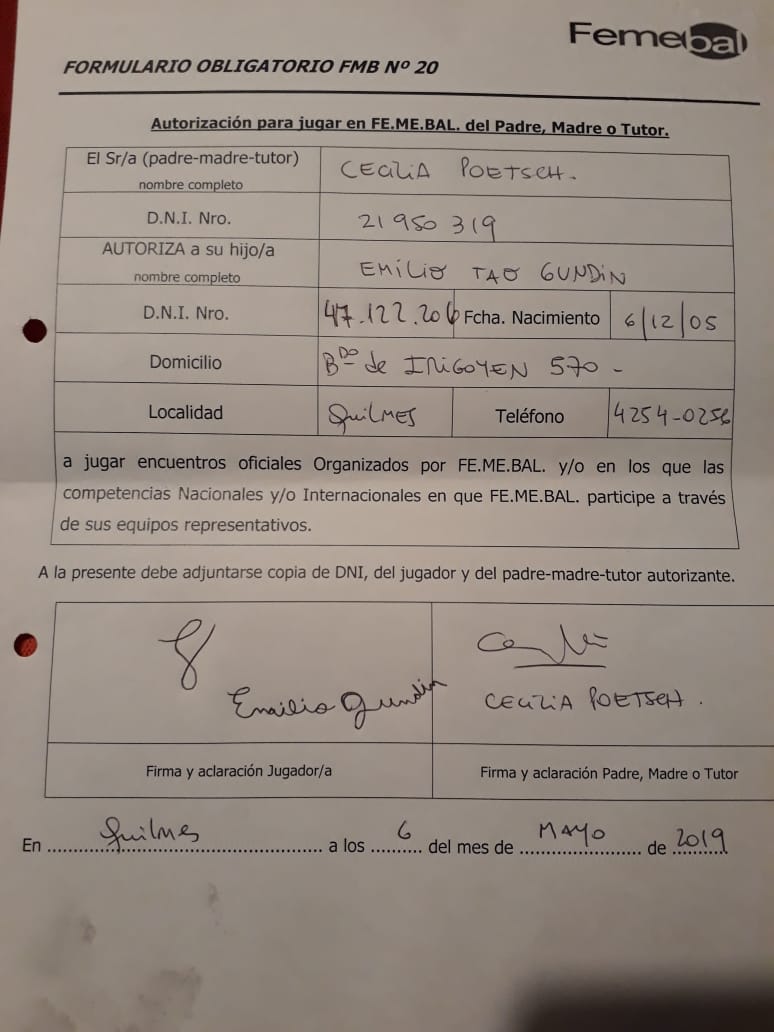 Femebal
FORMULARIO OBLIGATORIO FMB Nº 20
Autorización para jugar en FE.ME.BAL. del Padre, Madre o Tutor.
El Sr/a (padre-madre-tutor)
nombre completo
CECILIA POETSCH.
D.N.I. Nro.
21 950 319
AUTORIZA a su hijo/a
nombre completo
EMILIO TAO GUNDIN
D.N.I. Nro.
47.122.206
Fcha. Nacimiento
6/12/05
Domicilio
BDO de IRIGOYEN 570 -
Localidad
QUILMES
Teléfono
4254-0256
a jugar encuentros oficiales Organizados por FE.ME.BAL. y/o en los que las
competencias Nacionales y/o Internacionales en que FE.ME.BAL. participe a través
de sus equipos representativos.
A la presente debe adjuntarse copia de DNI, del jugador y del padre-madre-tutor autorizante.
Emilio Gundin
CECILIA POETSCH.
Firma y aclaración Jugador/a
Firma y aclaración Padre, Madre o Tutor
En Quilmes a los 6 del mes de MAYO de 2019